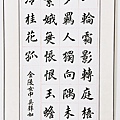 輪霜影轉庭梧
夕羈人獨向隅未
素娥無悵恨玉蟾
冷桂花孤
金陵女中